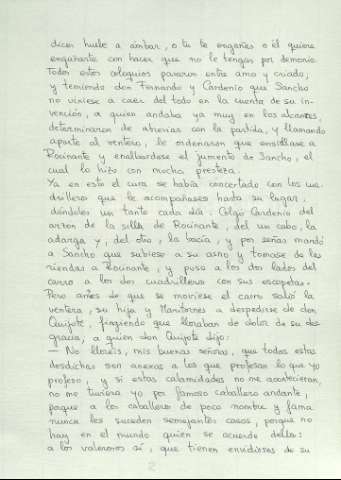 dices huele a ámbar, o tu te engañas o él quiere
engañarte con hacer que no le tengas por demonio.
Todos estos coloquios pasaron entre amo y criado,
y temiendo don Fernando y Cardenio que Sancho
no viniese a caer del todo en la cuenta de su in-
vención, a quien andaba ya muy en los alcances
determinaron de abreviar con la partida, y llamando
aparte al ventero, le ordenaron que ensillase a
Rocinante y enalbardase el jumento de Sancho, el
cual lo hizo con mucha presteza.
Ya en esto el cura se había concertado con los cua-
drilleros que le acompañasen hasta su lugar,
dándoles un tanto cada día. Colgó Cardenio del
arzon de la silla de Rocinante, del un cabo, la
adarga y, del otro, la bacía, y por señas mandó
a Sancho que subiese a su asno y tomase de las
riendas a Rocinante, y puso a los dos lados del
carro a los dos cuadrilleros con sus escopetas.
Pero antes de que se moviese el carro salió la
ventera, su hija y Maritornes a despedirse de don
Quijote, fingiendo que lloraban de dolor de su des-
gracia; a quien don Quijote dijo:
— No lloréis, mis buenas señoras, que todas estas
desdichas son anexas a los que profesan lo que yo
profeso, y si estas calamidades no me acontecieran,
no me tuviera yo por famoso caballero andante,
porque a los caballeros de poco nombre y fama
nunca les suceden semejantes casos, porque no
hay en el mundo quien se acuerde dellos:
a los valerosos sí, que tienen envidiosos de su
2